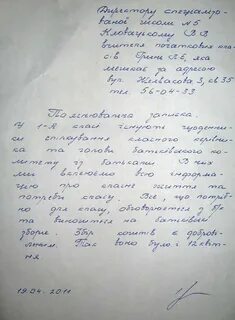 Директору спеціалізо-
ваної школи №5
Кловацькому В.В
вчителя початкових кла-
сів Гриц І.Б, яка
мешкає за адресою
вул. Желвасова 3, кв 35
тел. 56-04-33
Пояснювальна записка
У 1-А класі існують щоденни-
ки спілкування класного керівни-
ка та голови батьківського ко-
мітету із батьками. В них
ми вклеюємо всю інформа-
цію про класне життя та
потреби класу. Все, що потріб-
но для класу, обговорюється з
та виноситься на батьківські
збори. Збір коштів є доброві-
льним. Так воно було і 12 квіт-
ня
19.04.2011